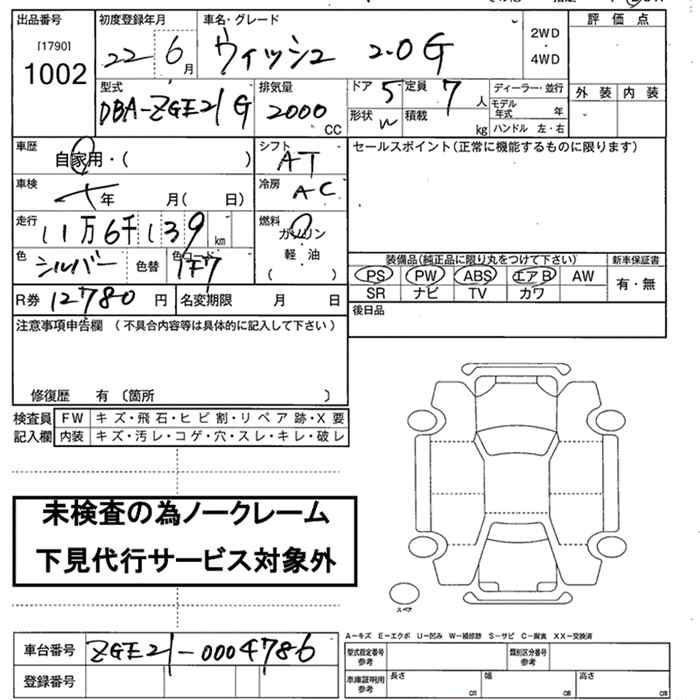 出品番号 初度登録年月 車名・グレード 評価点
[1790] 1002 22 6月 ウィッシュ 2.0G 2WD・4WD
型式 排気量 ドア 5 定員 7人 ディーラー・並行 外装 内装
DBA-ZGE21G 2000CC 形状 W 積載 kg モデル年式 年
ハンドル 左・右
車歴 自家用・( ) シフト AT セールスポイント(正常に機能するものに限ります)
車検 年 月( 日) 冷房 AC
走行 11万6千139km 燃料 ガソリン
軽・油
( )
色 シルバー 色替 色コード 1F7
装備品(純正品に限り丸をつけて下さい) 新車保証書
PS PW ABS エアB AW 有・無
SR ナビ TV カワ
R券 12780円 名変期限 月 日 後日品
注意事項申告欄 (不具合内容等は具体的に記入して下さい)
修復歴 有 〔箇所 〕
検査員 FW キズ・飛石・ヒビ割・リペア跡・X要
記入欄 内装 キズ・汚レ・コゲ・穴・スレ・キレ・破レ
未検査の為ノークレーム
下見代行サービス対象外
スペア
A-キズ E-エクボ U-凹み W-補修跡 S-サビ C-腐食 XX-交換済
車台番号 ZGE21-0004786 型式指定番号 参考 類別区分番号 参考
登録番号 車庫証明用 参考 長さ cm 幅 cm 高さ cm